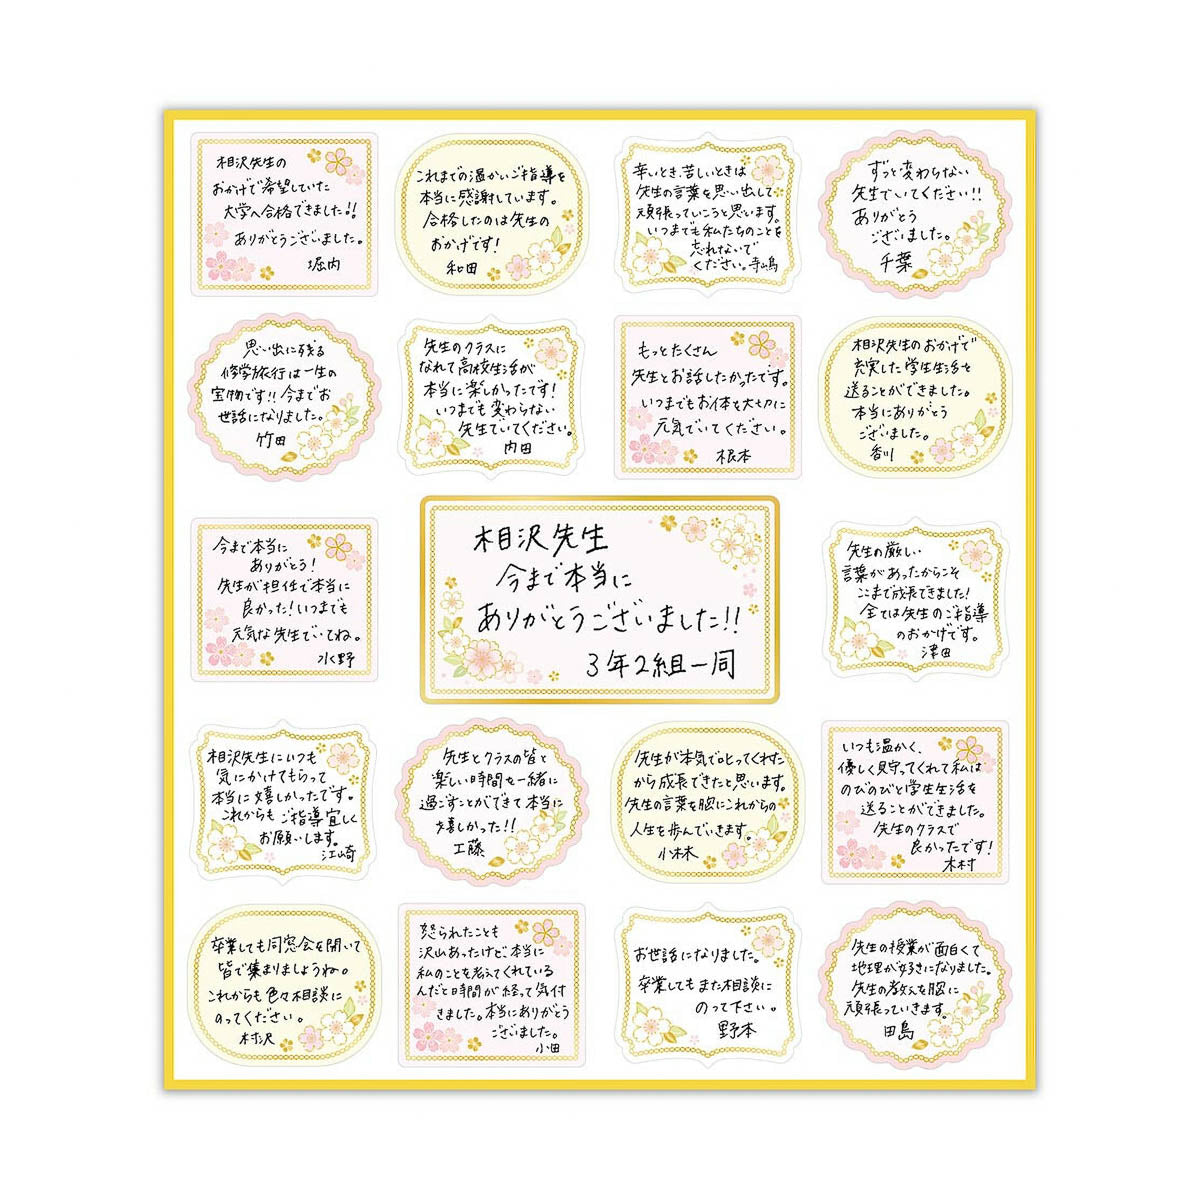 相沢先生の
おかげで希望していた
大学へ合格できました!!
ありがとうございました。
堀内
これまでの温かいご指導を
本当に感謝しています。
合格したのは先生の
おかげです!
和田
辛いとき、苦しいときは
先生の言葉を思い出して
頑張っていこうと思います。
いつまでも私たちのことを
忘れないで
ください。寺嶋
ずっと変わらない
先生でいてください!!
ありがとう
ございました。
千葉
思い出に残る
修学旅行は一生の
宝物です!!今までお
世話になりました。
竹田
先生のクラスに
なれて高校生活が
本当に楽しかったです!
いつまでも変わらない
先生でいてください。
内田
もっとたくさん
先生とお話したかったです。
いつまでもお体を大切に
元気でいてください。
根本
相沢先生のおかげで
充実した学生生活を
送ることができました。
本当にありがとう
ございました。
香川
今まで本当に
ありがとう!
先生が担任で本当に
良かった!いつまでも
元気な先生でいてね。
水野
相沢先生
今まで本当に
ありがとうございました!!
3年2組一同
先生の厳しい
言葉があったからこそ
ここまで成長できました!
全ては先生のご指導
のおかげです。
津田
相沢先生にいつも
気にかけてもらって
本当に嬉しかったです。
これからもご指導宜しく
お願いします。
江崎
先生とクラスの皆と
楽しい時間を一緒に
過ごすことができて本当に
嬉しかった!!
工藤
先生が本気で叱ってくれた
から成長できたと思います。
先生の言葉を胸にこれからの
人生を歩んでいきます。
小林
いつも温かく、
優しく見守ってくれて私は
のびのびと学生生活を
送ることができました。
先生のクラスで
良かったです!
木村
卒業しても同窓会を開いて
皆で集まりましょうね。
これからも色々相談に
のってください。
村沢
怒られたことも
沢山あったけど本当に
私のことを考えてくれている
んだと時間が経って気付
きました。本当にありがとう
ございました。
小田
お世話になりました。
卒業してもまた相談に
のって下さい。
野本
先生の授業が面白くて
地理が好きになりました。
先生の教えを胸に
頑張っていきます。
田島